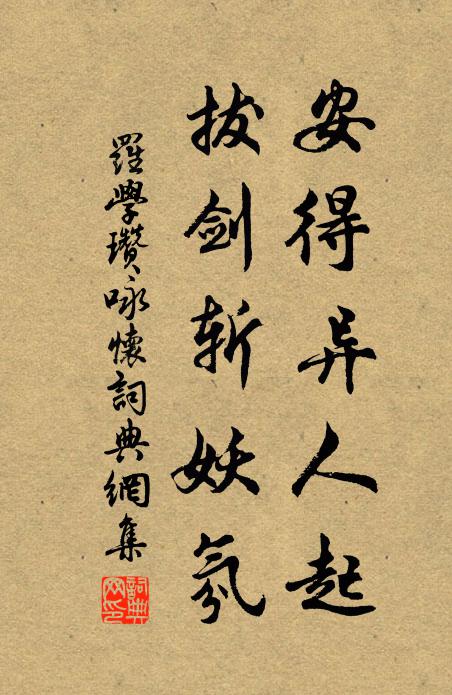 安得异人起
拔剑斩妖氛
羅學瓚咏懷詞典網集
詞典网印